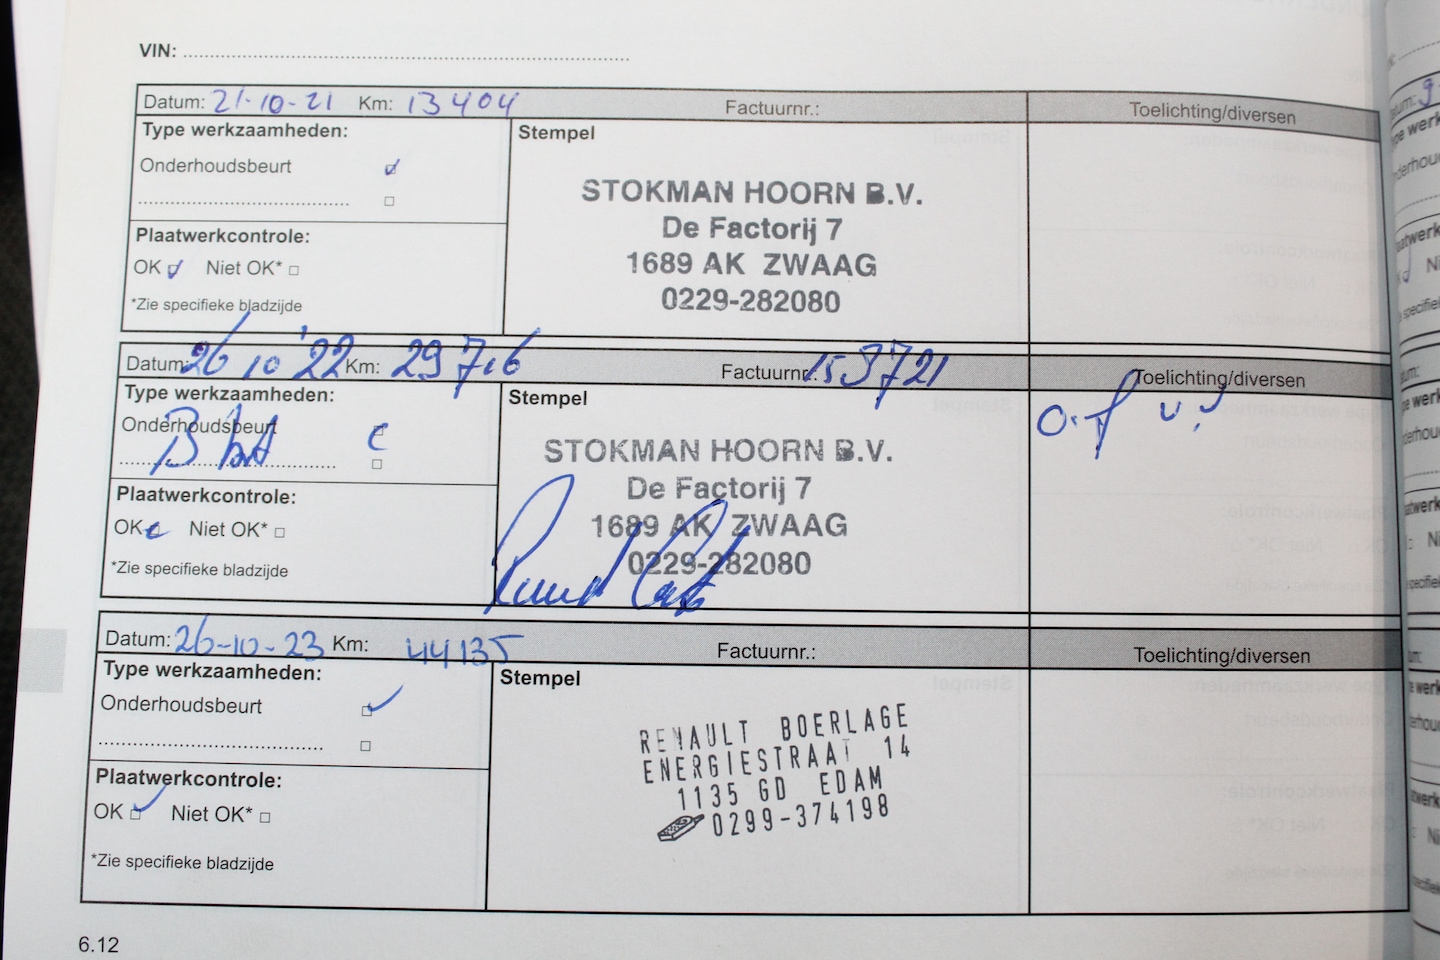 VIN:
Datum: 21-10-21 Km: 13404 Factuurnr.: Toelichting/diversen
Type werkzaamheden:
Stempel
Onderhoudsbeurt
Plaatwerkcontrole:
OK Niet OK*
*Zie specifieke bladzijde
STOKMAN HOORN B.V.
De Factorij 7
1689 AK ZWAAG
0229-282080
Datum: 26 10 '22 Km: 29716 Factuurnr.: 153721 Toelichting/diversen
Type werkzaamheden:
Stempel
Onderhoudsbeurt
Plaatwerkcontrole:
OK Niet OK*
*Zie specifieke bladzijde
STOKMAN HOORN B.V.
De Factorij 7
1689 AK ZWAAG
0229-282080
Datum: 26-10-23 Km: 44135 Factuurnr.: Toelichting/diversen
Type werkzaamheden:
Stempel
Onderhoudsbeurt
Plaatwerkcontrole:
OK Niet OK*
*Zie specifieke bladzijde
RENAULT BOERLAGE
ENERGIESTRAAT 14
1135 GD EDAM
0299-374198
6.12